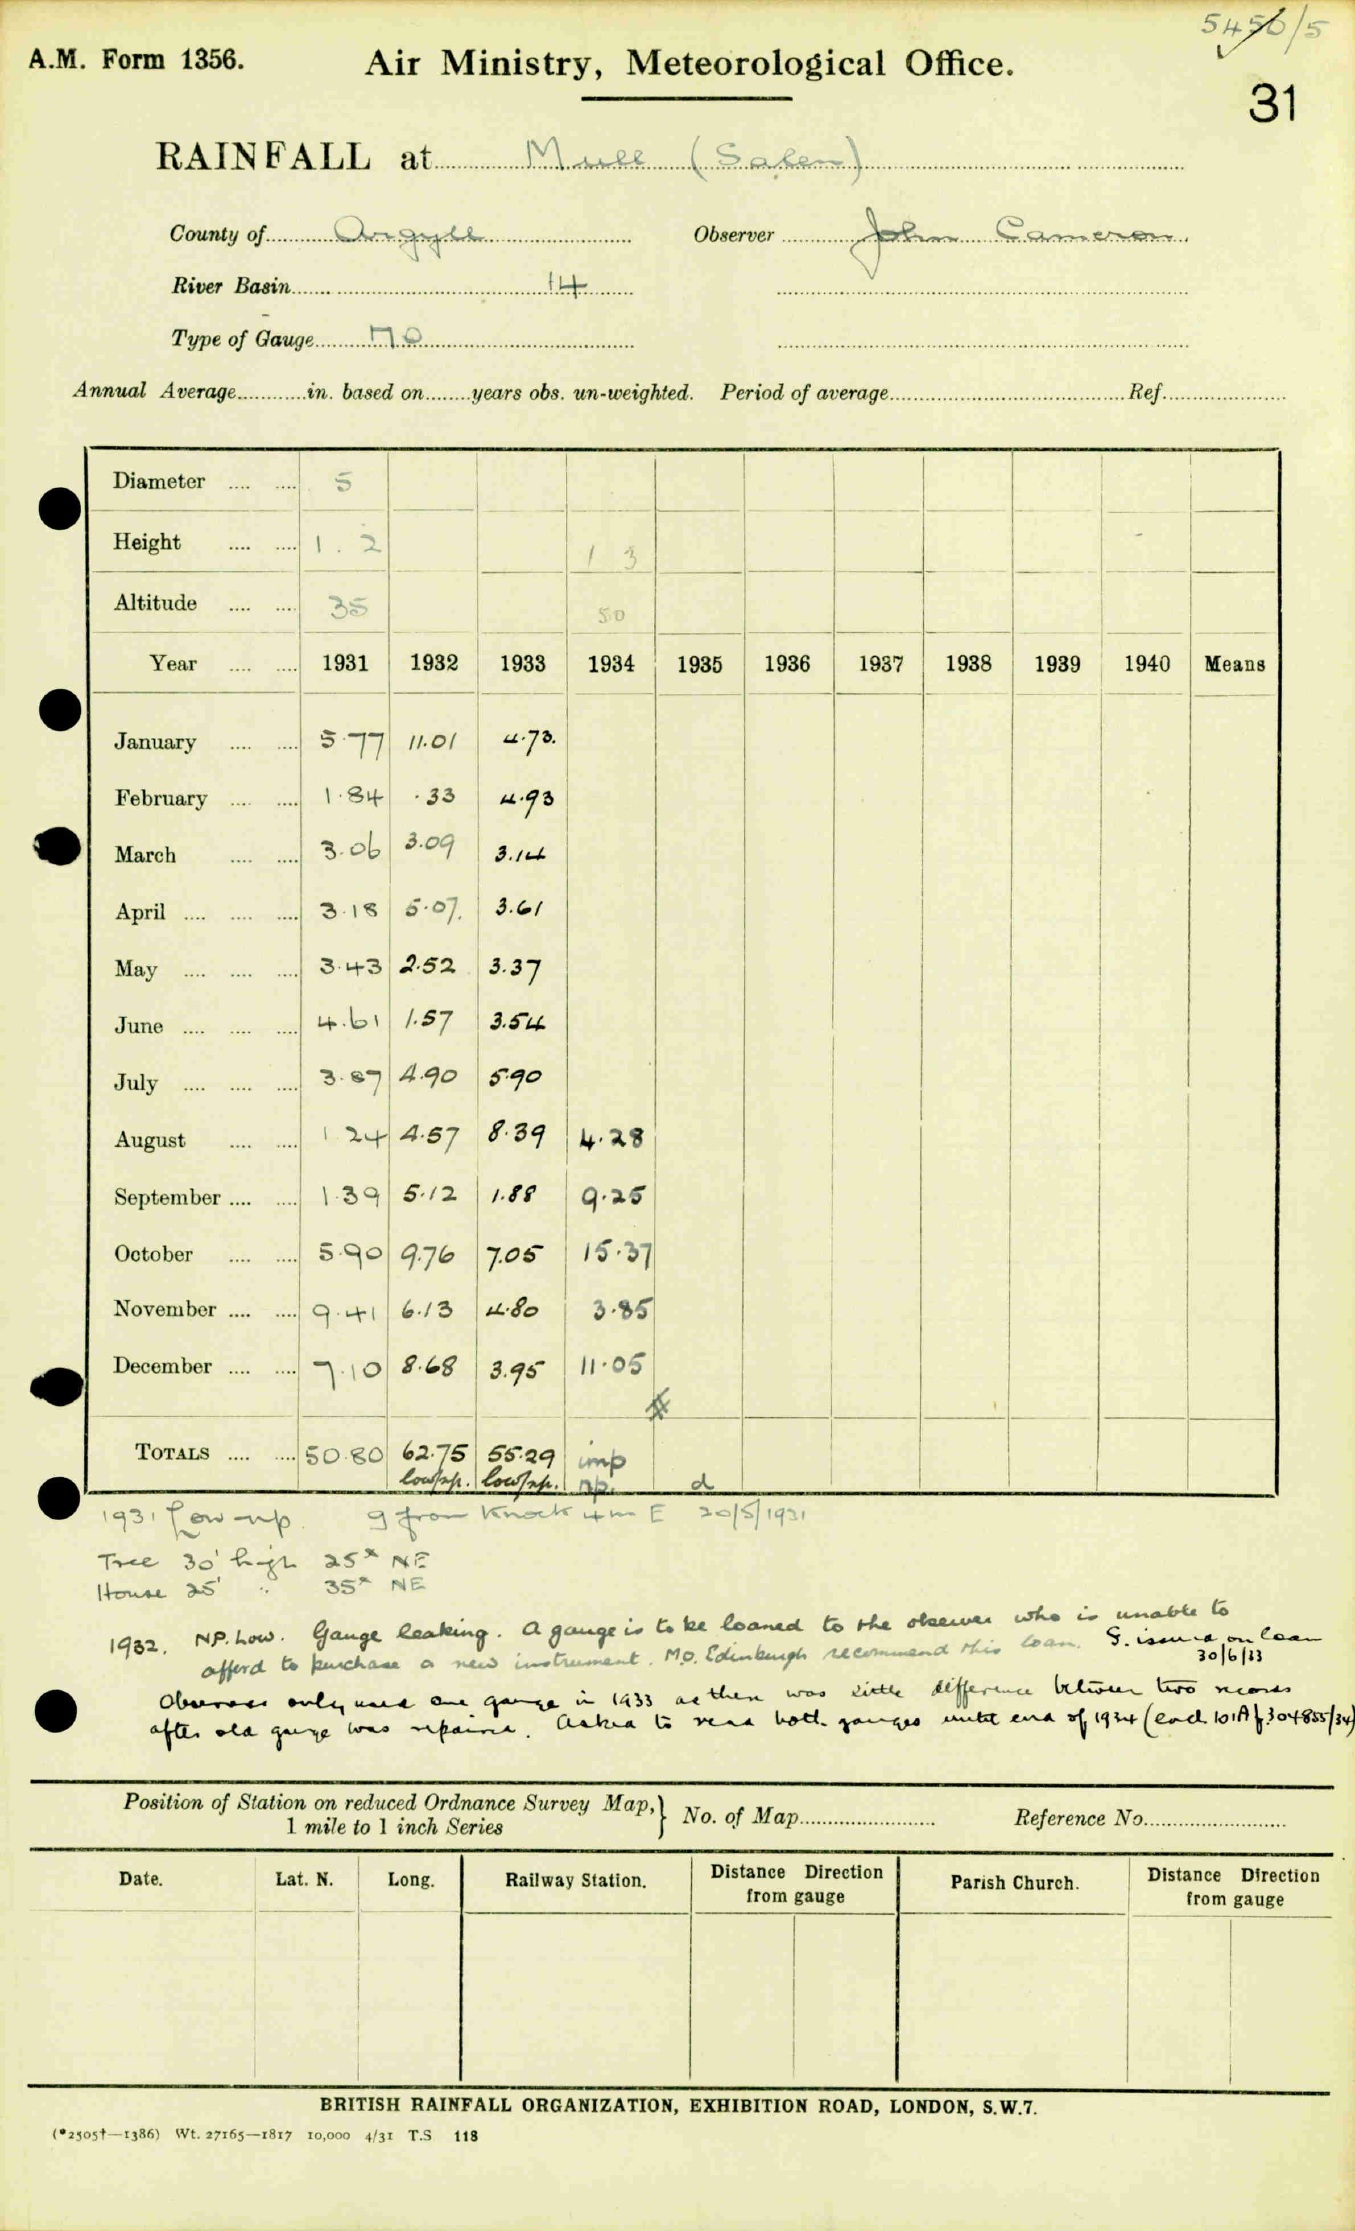 5456/5
A.M. Form 1356. Air Ministry, Meteorological Office.
31
RAINFALL at Mull (Salen)
County of Argyll Observer John Cameron
River Basin 14
Type of Gauge MO
Annual Average in. based on years obs. un-weighted. Period of average Ref.
Diameter 5
Height 1.2 1 3
Altitude 35 50
Year 1931 1932 1933 1934 1935 1936 1937 1938 1939 1940 Means
January 5.77 11.01 4.73.
February 1.84 .33 4.93
March 3.06 3.09 3.14
April 3.18 5.07. 3.61
May 3.43 2.52 3.37
June 4.61 1.57 3.54
July 3.87 4.90 5.90
August 1 24 4.57 8.39 4.28
September 1.39 5.12 1.88 9.25
October 5.90 9.76 7.05 15.37
November 9.41 6.13 4.80 3.85
December 7.10 8.68 3.95 11.05
TOTALS 50.80 62.75 55.29 imp
low/np. low/np. np. d
1931 Low np g from Knock 4m E 20/5/1931
Tree 30' high 25x NE
House 25' " 35x NE
1932. NP. Low. Gauge leaking. A gauge is to be loaned to the observer who is unable to
afford to purchase a new instrument. M.O. Edinburgh recommend this loan. G. issued on loan
30/6/33
Observer only used one gauge in 1933 as there was little difference between two records
after old gauge was repaired. Asked to read both gauges until end of 1934 (end. 101A f. 304855/34)
Position of Station on reduced Ordnance Survey Map,} No. of Map Reference No.
1 mile to 1 inch Series
Date. Lat. N. Long. Railway Station. Distance Direction Parish Church. Distance Direction
from gauge from gauge
BRITISH RAINFALL ORGANIZATION, EXHIBITION ROAD, LONDON, S.W.7.
(*2505†—1386) Wt. 27165—1817 10,000 4/31 T.S 118